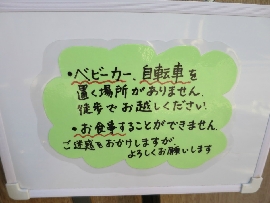 ・ベビーカー、自転車を
置く場所がありません.
徒歩でお越しください!
・お食事することができません.
ご迷惑をおかけしますが、
よろしくお願いします